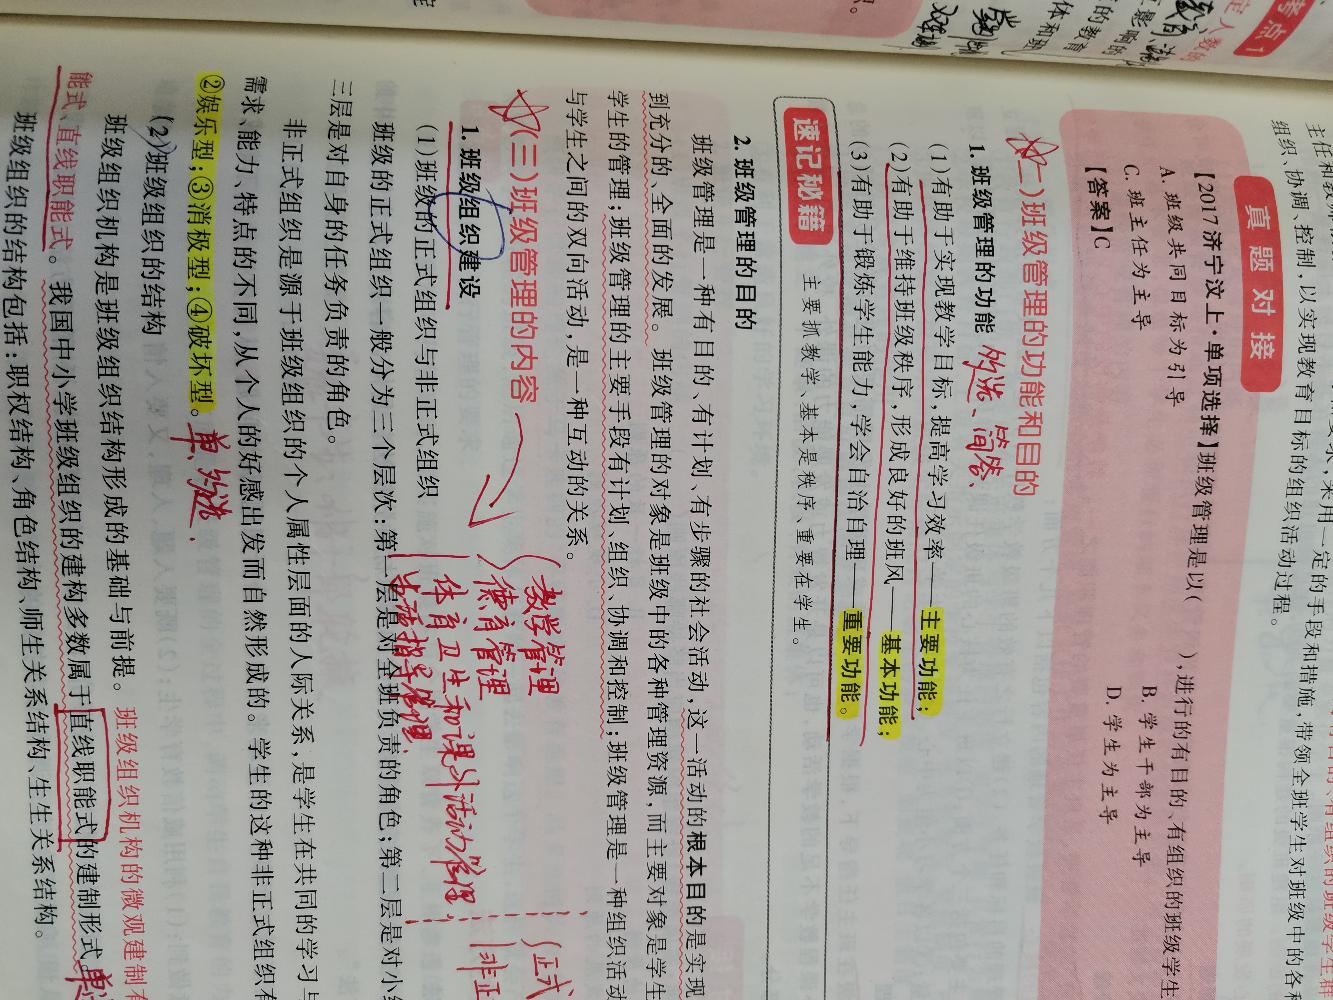 考点1
组织、协调、控制,以实现教育目标的组织活动过程。
真题对接
【2017济宁汶上·单项选择】班级管理是以( ),进行的有目的、有组织的班级学生
A. 班级共同目标为引导
B. 学生干部为主导
C. 班主任为主导
D. 学生为主导
【答案】C
(二)班级管理的功能和目的
1. 班级管理的功能 多选、简答、
(1)有助于实现教学目标,提高学习效率——主要功能;
(2)有助于维持班级秩序,形成良好的班风——基本功能;
(3)有助于锻炼学生能力,学会自治自理——重要功能。
速记秘籍
主要抓教学、基本是秩序、重要在学生。
2. 班级管理的目的
班级管理是一种有目的、有计划、有步骤的社会活动,这一活动的根本目的是实现
到充分的、全面的发展。班级管理的对象是班级中的各种管理资源,而主要对象是学生
学生的管理;班级管理的主要手段有计划、组织、协调和控制;班级管理是一种组织活动
与学生之间的双向活动,是一种互动的关系。
(三)班级管理的内容
教学管理
德育管理
体育卫生和课外活动管理
生活指导管理
正式
非正
1. 班级组织建设
(1)班级的正式组织与非正式组织
班级的正式组织一般分为三个层次:第一层是对全班负责的角色;第二层是对小
三层是对自身的任务负责的角色。
非正式组织是源于班级组织的个人属性层面的人际关系,是学生在共同的学习与
需求、能力、特点的不同,从个人的好感出发而自然形成的。学生的这种非正式组织有
②娱乐型;③消极型;④破坏型。单,多选.
(2)班级组织的结构
班级组织机构是班级组织结构形成的基础与前提。班级组织机构的微观建制有
能式、直线职能式。我国中小学班级组织的建构多数属于直线职能式的建制形式。单选
班级组织的结构包括:职权结构、角色结构、师生关系结构、生生关系结构。